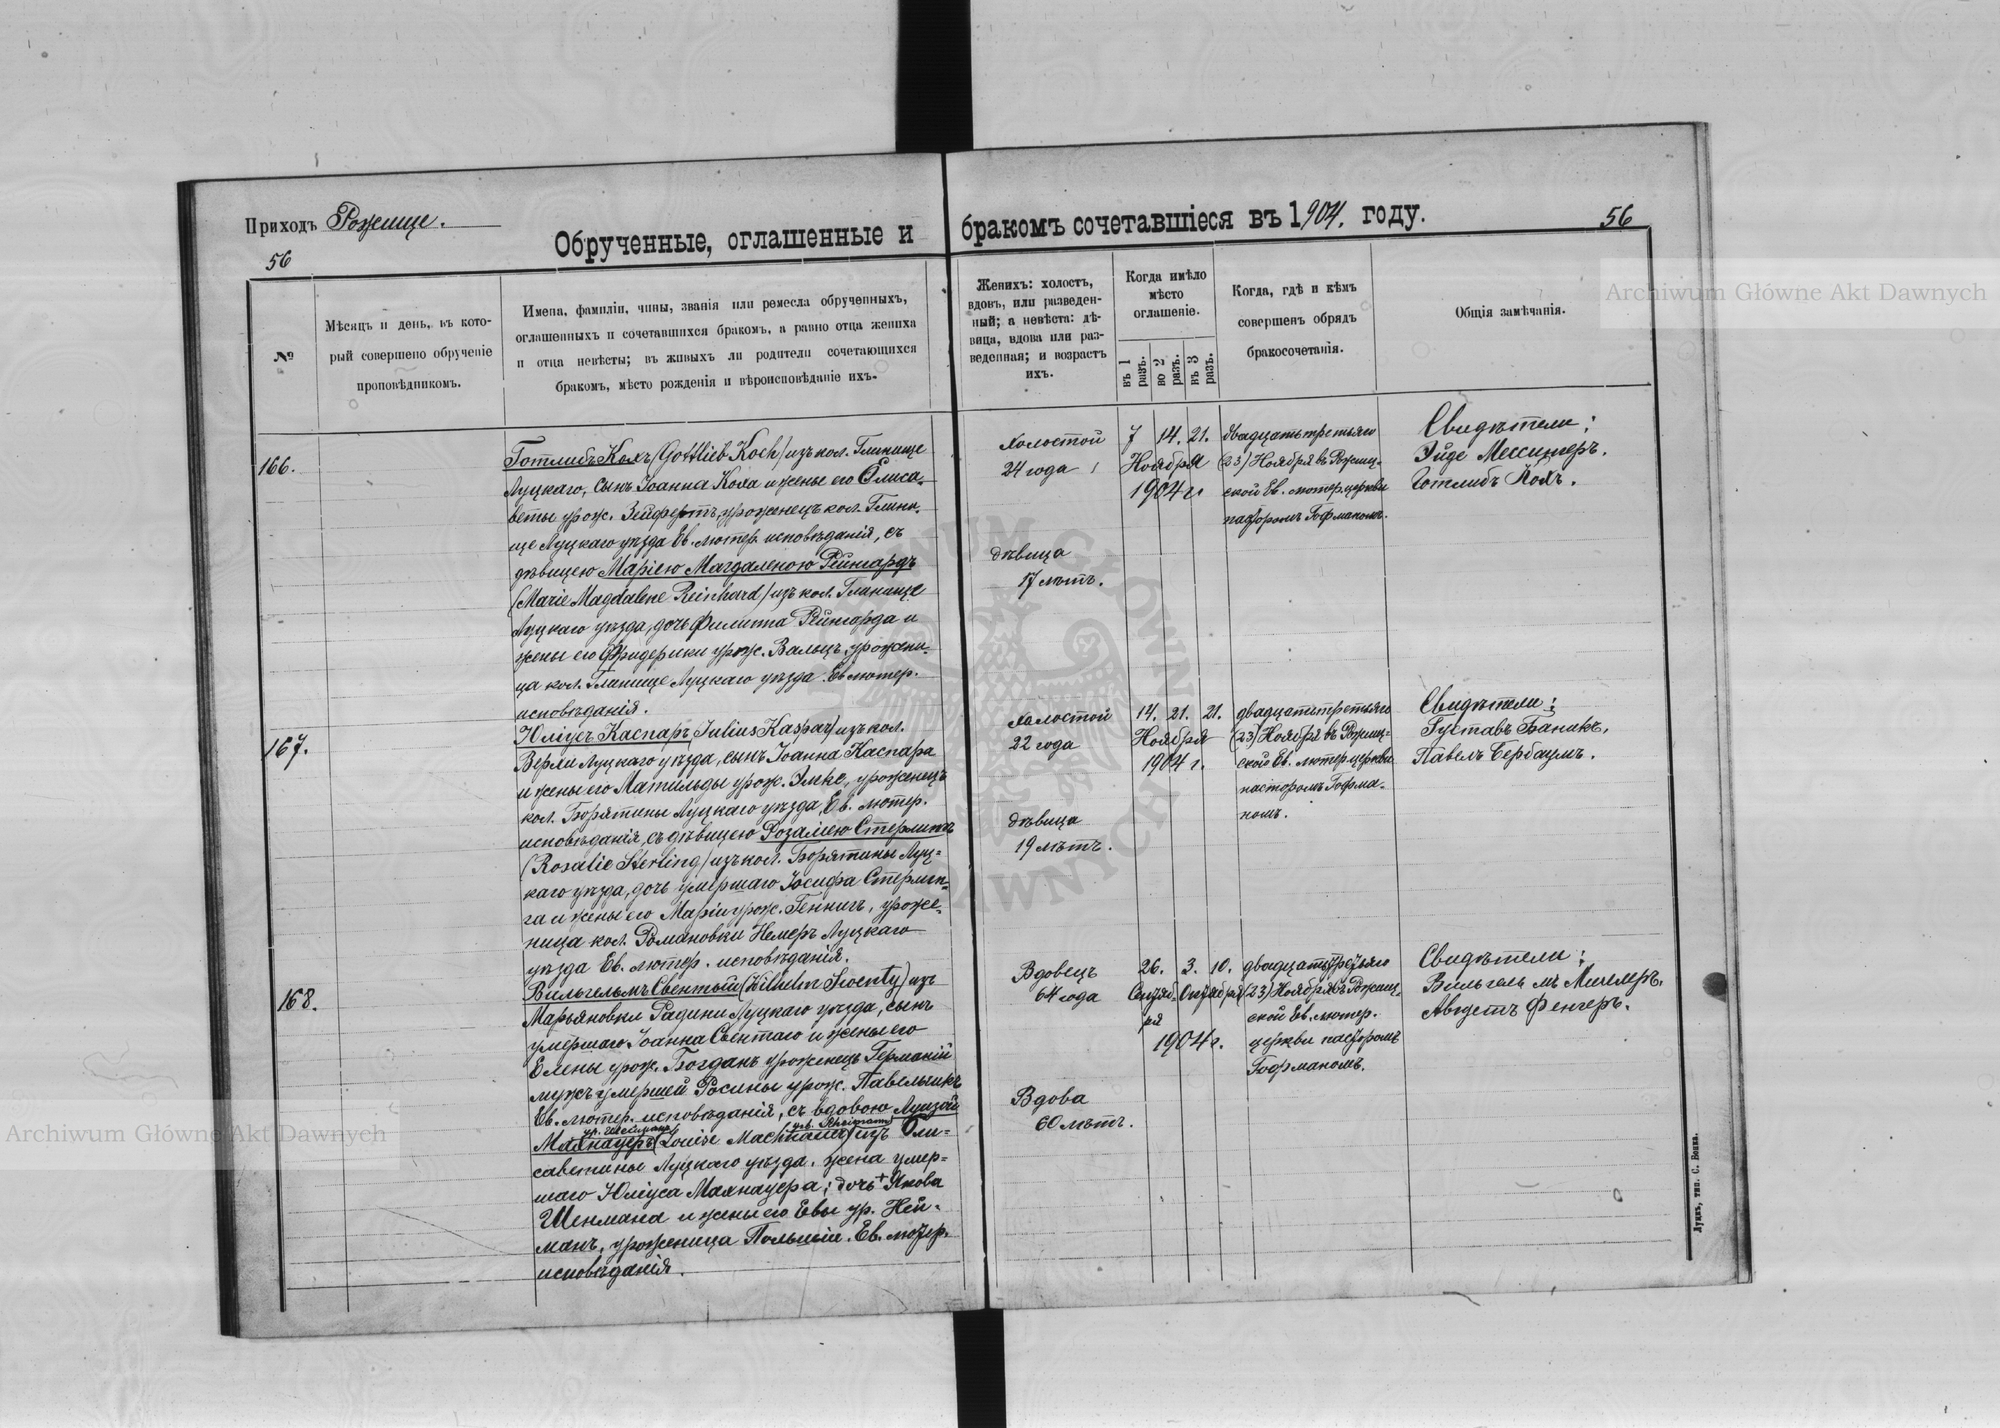 Приходъ Рожище.
56
Обрученные, оглашенные и бракомъ сочетавшіеся въ 1904. году.
56
№
Мѣсяцъ и день, въ кото-
рый совершено обрученіе
проповѣдникомъ.
Имена, фамиліи, чины, званія или ремесла обрученныхъ,
оглашенныхъ и сочетавшихся бракомъ, а равно отца жениха
и отца невѣсты; въ живыхъ ли родители сочетающихся
бракомъ, мѣсто рожденія и вѣроисповѣданіе ихъ.
Женихъ: холостъ,
вдовъ, или разведен-
ный; а невѣста: дѣ-
вица, вдова или раз-
веденная; и возрастъ
ихъ.
Когда имѣло
мѣсто
оглашеніе.
въ 1 разъ.
во 2 разъ.
въ 3 разъ.
Когда, гдѣ и кѣмъ
совершенъ обрядъ
бракосочетанія.
Общія замѣчанія.
166.
Готлибъ Кохъ (Gottlieb Koch) изъ кол. Глинище
Луцкаго, сынъ Іоанна Коха и жены его Елиса-
веты урож. Зейфертъ, уроженецъ кол. Глини-
ще Луцкаго уѣзда Ев. лютер. исповѣданія, съ
дѣвицею Маріею Магдаленою Рейнгардъ
(Marie Magdalene Reinhard) изъ кол. Глинище
Луцкаго уѣзда, дочь Филиппа Рейнгарда и
жены его Фридерики урож. Вальцъ, урожени-
ца кол. Глинище Луцкаго уѣзда. Ев. лютер.
исповѣданія.
Холостой
24 года
дѣвица
17 лѣтъ.
7 14. 21.
Ноября
1904 г.
двадцать третьяго
(23) Ноября въ Рожищ-
ской Ев. лютер. церкви
пасторомъ Гофманомъ.
Свидѣтели:
Эйде Мессингеръ.
Готлибъ Кохъ.
167.
Юліусъ Каспаръ (Julius Kaspar) изъ кол.
Верли Луцкаго уѣзда, сынъ Іоанна Каспара
и жены его Матильды урож. Эльке, уроженецъ
кол. Борятины Луцкаго уѣзда, Ев. лютер.
исповѣданія, съ дѣвицею Розаліею Стерлингъ
(Rosalie Sterling) изъ кол. Борятины Луц-
каго уѣзда, дочь умершаго Іосифа Стерлин-
га и жены его Маріи урож. Геннигъ, уроже-
ница кол. Романовки Немеръ Луцкаго
уѣзда Ев. лютер. исповѣданія.
Холостой
22 года
дѣвица
19 лѣтъ.
14. 21. 21.
Ноября
1904 г.
двадцать третьяго
(23) Ноября въ Рожищ-
ской Ев. лютер. церкви
пасторомъ Гофма-
номъ.
Свидѣтели:
Густавъ Баникъ,
Павелъ Сербаумъ.
168.
Вильгельмъ Свентый (Wilhelm Swenty) изъ
Марьяновки Радини Луцкаго уѣзда, сынъ
умершаго Іоанна Свентаго и жены его
Елены урож. Богданъ уроженецъ Германіи
мужъ умершей Росины урож. Павельчикъ
Ев. лютер. исповѣданія, съ вдовою Луизой
ур. Шейманъ
Махнауеръ (Louise Machnauer) изъ Ели-
саветины Луцкаго уѣзда. жена умер-
шаго Юліуса Махнауера; дочь + Якова
Шенмана и жены его Евы ур. Ней-
манъ, уроженица Польши. Ев. лютер.
исповѣданія.
Вдовецъ
64 года
Вдова
60 лѣтъ.
26. 3. 10.
Сентяб- Октября
ря
1904 г.
двадцать третьяго
(23) Ноября въ Рожищ-
ской Ев. лютер.
церкви пасторомъ
Гофманомъ.
Свидѣтели:
Вильгельмъ Миллеръ.
Августъ Фенгеръ.
Луцкъ, тип. С. Бонка.
Archiwum Główne Akt Dawnych
Archiwum Główne Akt Dawnych
ARCHIWUM GŁÓWNE AKT DAWNYCH